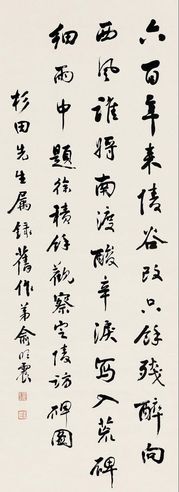 六百年来陵谷改只餘殘醉向
西風誰將南渡酸辛淚寫入荒碑
細雨中題徐積餘觀察定陵訪碑圖
杉田先生属錄舊作弟俞明震